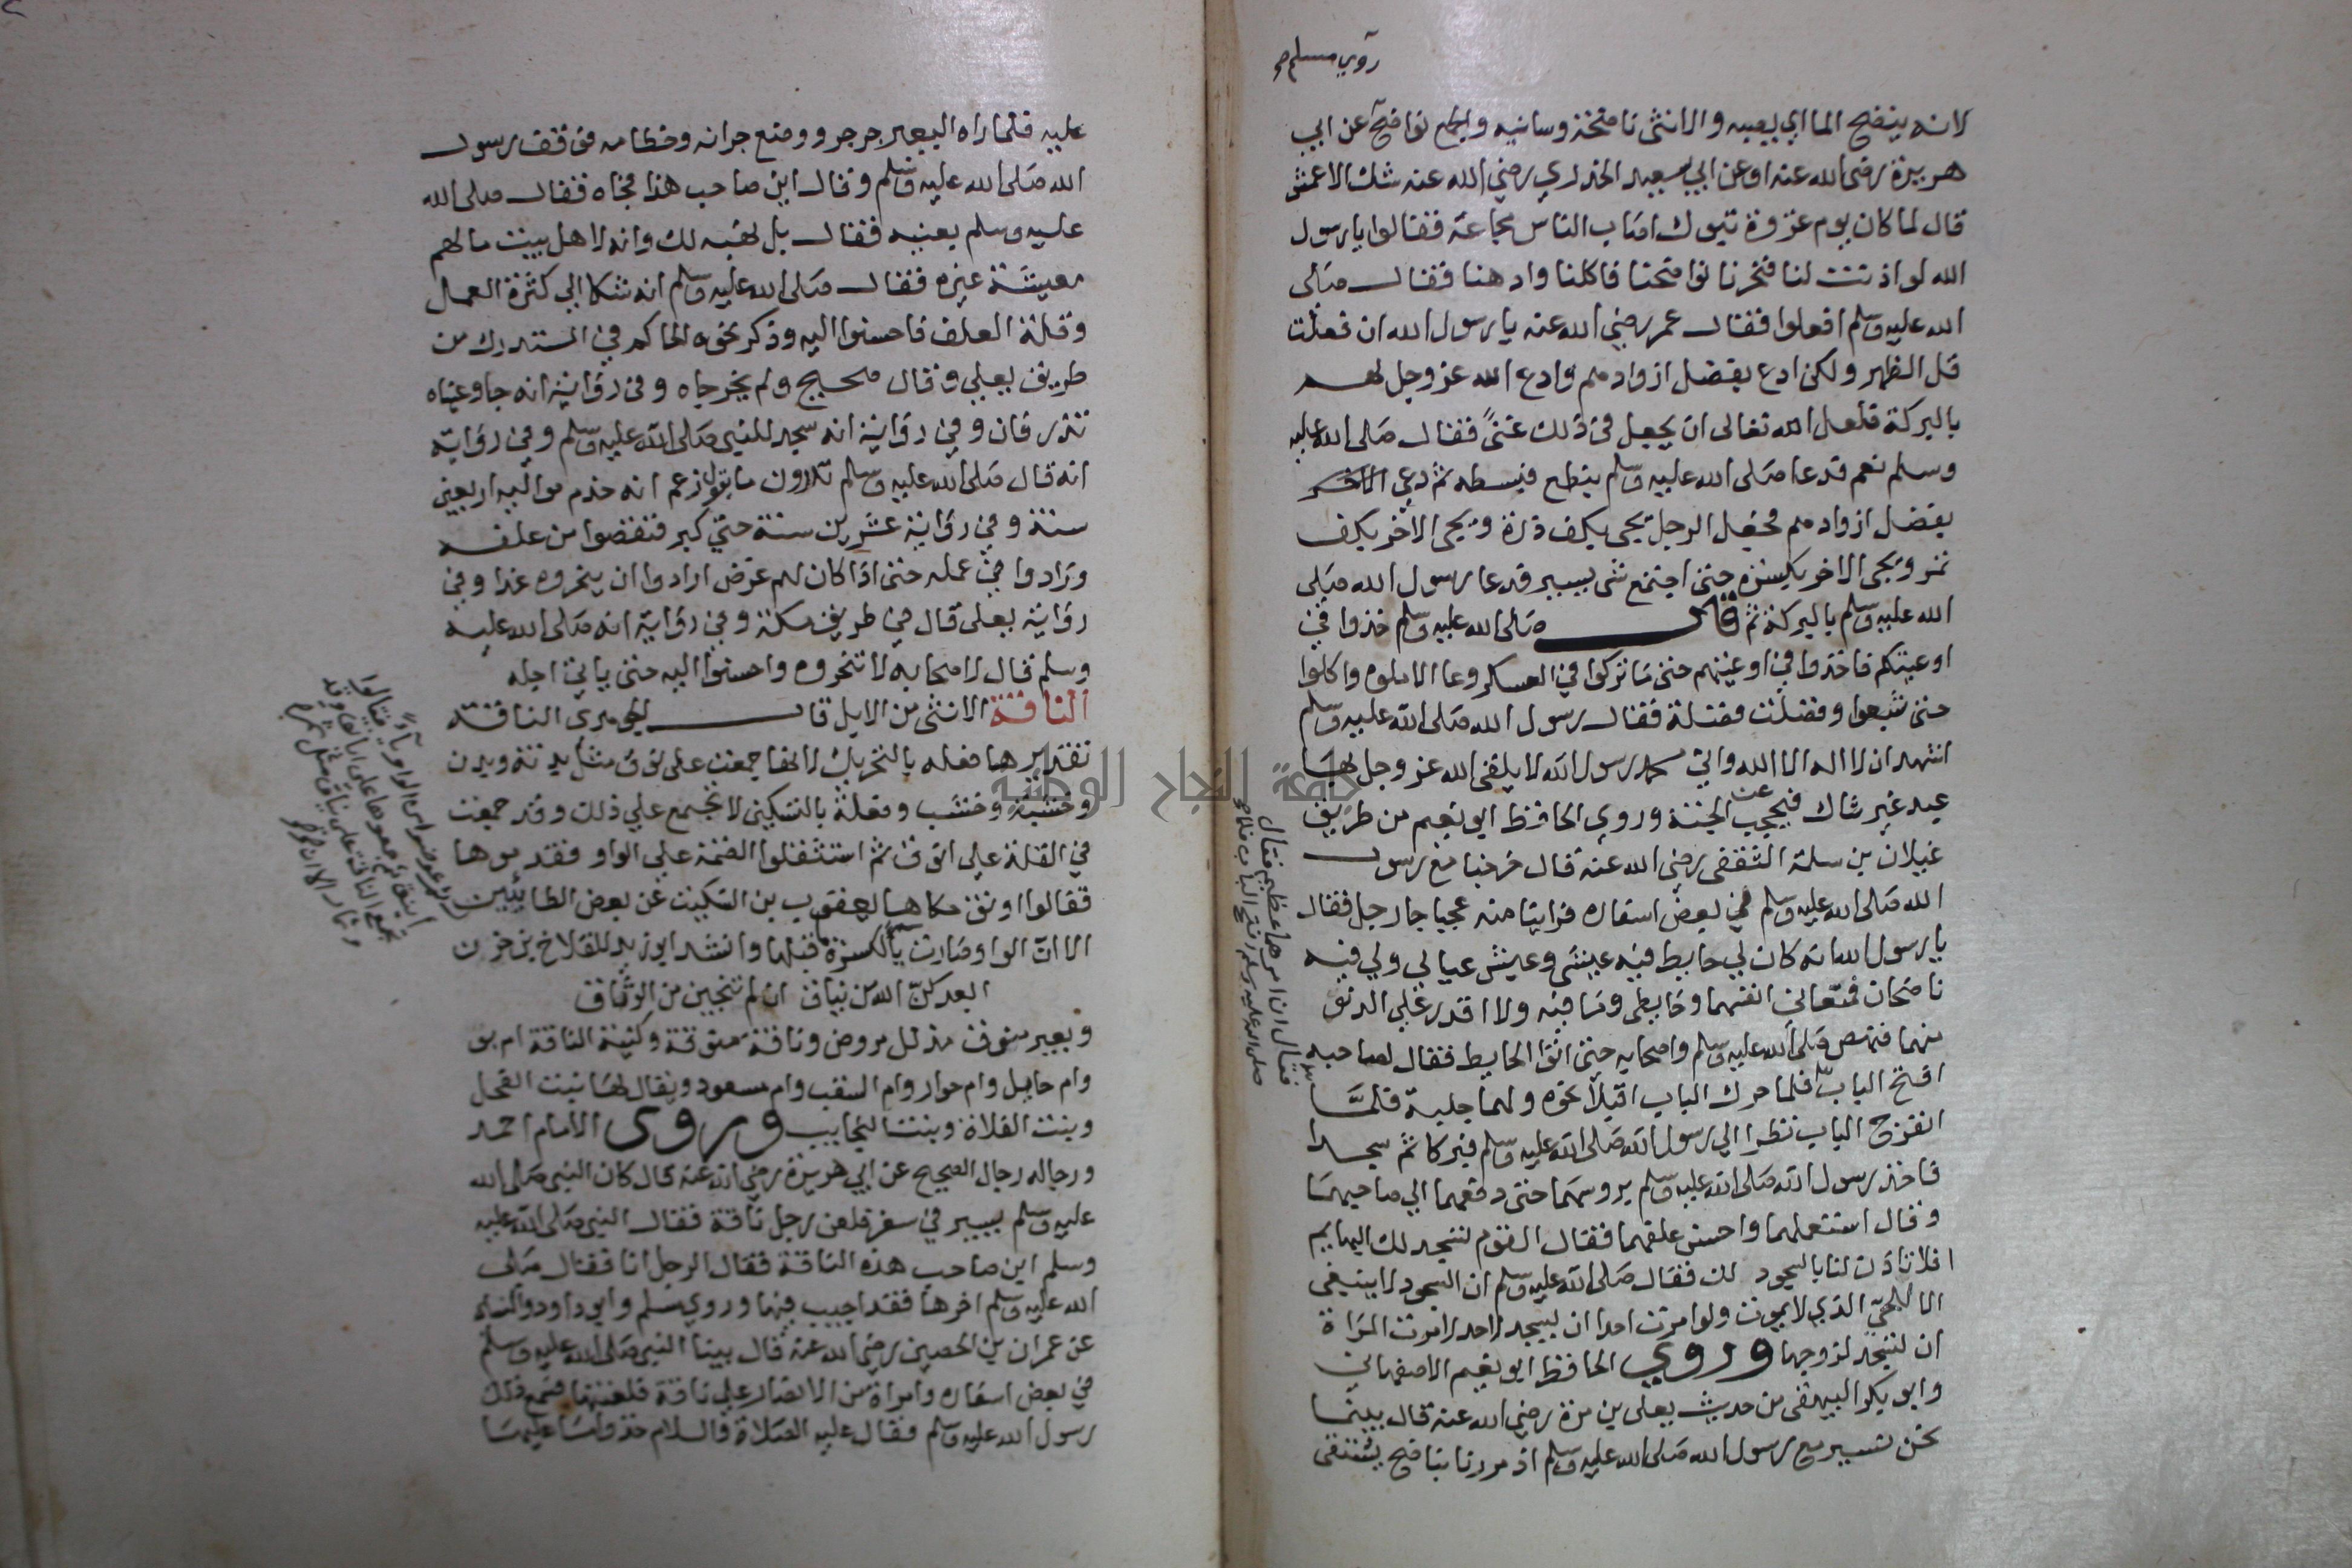 روي مسلم
لانه ينضح الما اي يصبه والانثى ناضحة وسانيه والجمع نواضح عن ابي
هريرة رضي الله عنه او عن ابي سعيد الخدري رضي الله عنه شك الاعمش
قال لما كان يوم غزوة تبوك اصاب الناس مجاعة فقالوا يا رسول
الله لو اذنت لنا فنحرنا نواضحنا فاكلنا وادهنا فقال صلى
الله عليه وسلم افعلوا فقال عمر رضي الله عنه يا رسول الله ان فعلت
قل الظهر ولكن ادع بفضل ازوادهم وادع الله عز وجل لهم
بالبركة فلعل الله تعالى ان يجعل في ذلك غنىً فقال صلى الله عليه
وسلم نعم فدعا صلى الله عليه وسلم بنطع فبسطه ثم دعي
بفضل ازوادهم فجعل الرجل يجى بكف ذرة ويجى الاخر بكف
تمر ويجى الاخر بكسرة حتى اجتمع شى يسير فدعا رسول الله صلى
الله عليه وسلم بالبركة ثم قال صلى الله عليه وسلم خذوا في
اوعيتكم فاخذوا في اوعيتهم حتى ما تركوا في العسكر وعا الا ملوه واكلوا
حتى شبعوا وفضلت فضلة فقال رسول الله صلى الله عليه وسلم
اشهد ان لا اله الا الله واني محمد رسول الله لا يلقى الله عز وجل بهما
عبد غير شاك فيحجب عن الجنة وروي الحافظ ابو نعيم من طريق
غيلان بن سلمة الثقفى رضي الله عنه قال خرجنا مع رسول
الله صلى الله عليه وسلم في بعض اسفاره فراينا منه عجبا جا رجل فقال
يا رسول الله انه كان لي حايط فيه عيشى وعيش عيالي ولي فيه
ناضحان فمنعاني انفسهما وحايطى وما فيه ولا اقدر على الدنو
منهما فنهض صلى الله عليه وسلم واصحابه حتى اتى الحايط فقال لصاحبه
افتح الباب فلما حرك الباب اقبلا نحوه ولهما جلبة فلما
انفرج الباب نظرا الى رسول الله صلى الله عليه وسلم فبركا ثم سجدا
فاخذ رسول الله صلى الله عليه وسلم بروسهما حتى دفعهما الي صاحبهما
وقال استعملهما واحسن علفهما فقال القوم تسجد لك البهايم
افلا تاذن لنا بالسجود لك فقال صلى الله عليه وسلم ان السجود لا ينبغى
الا للحيّ الذي لا يموت ولو امرت احدا ان يسجد لاحد لامرت المراة
ان تسجد لزوجها وروي الحافظ ابو نعيم الاصفهاني
وابو بكر البيهقى من حديث يعلى بن مرة رضي الله عنه قال بينما
نحن نسير مع رسول الله صلى الله عليه وسلم اذ مررنا بناضح يستقى
فقال ان امرهما عظيم فقال
صلى الله عليه وسلم افتح الباب
عليه فلما راه البعير جرجر ووضع جرانه وخطامه فوقف رسول
الله صلى الله عليه وسلم وقال اين صاحب هذا فجاه فقال صلى الله
عليه وسلم بعنيه فقال بل نهبه لك وانه لاهل بيت ما لهم
معيشة غيره فقال صلى الله عليه وسلم انه شكا الي كثرة العمل
وقلة العلف فاحسنوا اليه وذكر نحوه الحاكم في المستدرك من
طريق يعلي وقال صحيح ولم يخرجاه وفي رواية انه جا وعيناه
تذرفان وفي رواية انه سجد للنبي صلى الله عليه وسلم وفي رواية
انه قال صلى الله عليه وسلم تدرون ما يقول زعم انه خدم مواليه اربعين
سنة وفي رواية عشرين سنة حتي كبر فنقصوا من علفه
وزادوا في عمله حتى اذا كان لهم عرض ارادوا ان ينحروه غدا وفي
رواية يعلى قال في طريق مكة وفي رواية انه صلى الله عليه
وسلم قال لاصحابه لا تنحروه واحسنوا اليه حتى ياتي اجله
الناقة الانثى من الابل قال الجوهري الناقة
تقديرها فعله بالتحريك لانها جمعت على نوق مثل بدنة وبدن
وخشبة وخشب وفعلة بالتسكين لا تجمع علي ذلك وقد جمعت
في القلة علي انوق ثم استثقلوا الضمة علي الواو فقدموها
فقالوا اونق حكاها يعقوب بن السكيت عن بعض الطائيين
الا ان الواو صارت يا لكسرة قبلها وانشد ابو زيد للقلاخ بن حزن
ابعدكن الله من نياق ان لم تنجين من الوثاق
وبعير منوق مذلل مروض وناقة منوقة وكنية الناقة ام بو
وام حايل وام حوار وام السقب وام مسعود ويقال لها بنت الفحل
وبنت الفلاة وبنت النجايب وروى الامام احمد
ورجاله رجال الصحيح عن ابي هريرة رضي الله عنه قال كان النبي صلى الله
عليه وسلم يسير في سفر فلعن رجل ناقة فقال النبي صلى الله عليه
وسلم اين صاحب هذه الناقة فقال الرجل انا فقال صلى
الله عليه وسلم اخرها فقد اجيب فيها وروي مسلم وابو داود والنساء
عن عمران بن الحصين رضي الله عنه قال بينا النبي صلى الله عليه وسلم
في بعض اسفاره وامراة من الانصار علي ناقة فلعنتها فسمع ذلك
رسول الله عليه وسلم فقال عليه الصلاة والسلام خذوا ما عليها
ثم عوضوا من الواو يآءً فقالوا
اينق ثم جمعوها على ايانق وقد
تجمع الناقة على نياق مثل ثمرة
وثمار
جامعة النجاح الوطنية